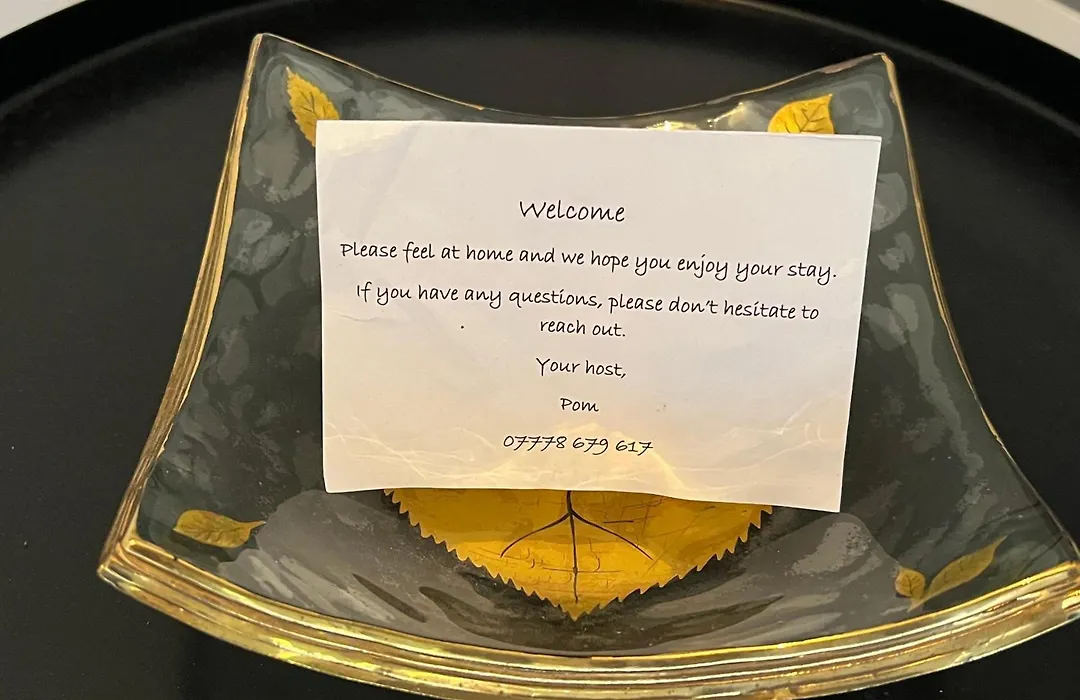 Welcome
Please feel at home and we hope you enjoy your stay.
If you have any questions, please don't hesitate to
reach out.
Your host,
Pom
07778 679 617